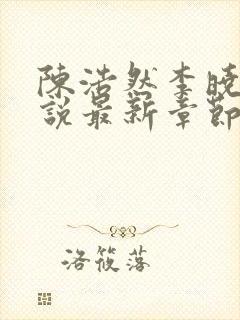 陳浩然李曉
說最新章節
洛筱落